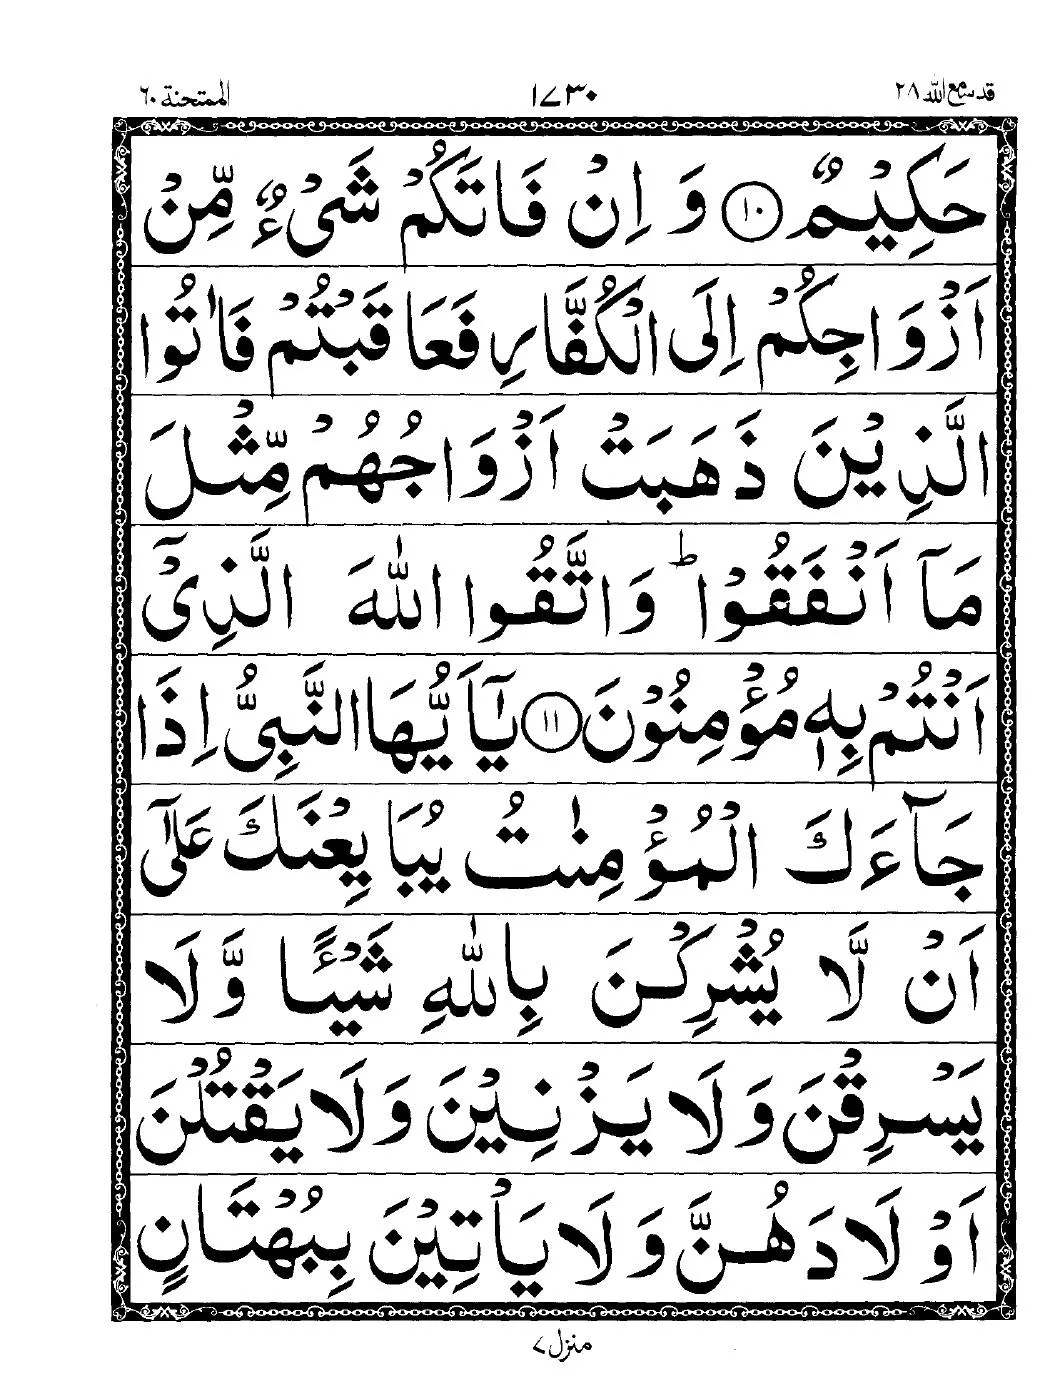 قد سمع الله ٢٨
١٧٣٠
الممتحنة ٦٠
حَكِيْمٌ ١٠ وَ اِنْ فَاتَكُمْ شَىْءٌ مِّنْ
اَزْوَاجِكُمْ اِلَى الْكُفَّارِ فَعَاقَبْتُمْ فَاٰتُوا
الَّذِيْنَ ذَهَبَتْ اَزْوَاجُهُمْ مِّثْلَ
مَاۤ اَنْفَقُوْا ؕ وَاتَّقُوا اللّٰهَ الَّذِىْۤ
اَنْتُمْ بِهٖ مُؤْمِنُوْنَ ١١ يٰۤاَيُّهَا النَّبِىُّ اِذَا
جَآءَكَ الْمُؤْمِنٰتُ يُبَايِعْنَكَ عَلٰٓى
اَنْ لَّا يُشْرِكْنَ بِاللّٰهِ شَيْـًٔا وَّلَا
يَسْرِقْنَ وَلَا يَزْنِيْنَ وَلَا يَقْتُلْنَ
اَوْلَادَهُنَّ وَلَا يَاْتِيْنَ بِبُهْتَانٍ
منزل ٧